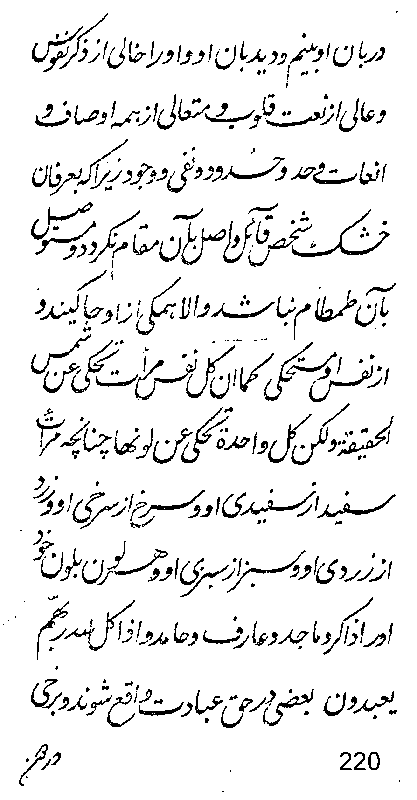 دربان او بینم و دیدبان او و او را خالی از ذکر نفوس
و عالی از نعت قلوب و متعالی از همه اوصاف و
انعات وحد و حدود و نفی و وجود زیرا که بعرفان
خشک شخص قائل واصل بآن مقام نکردد و متوصل
بآن طمطام نباشد والا همکی از او حاکیند و
از نفس او مستحکی کما ان کل نفس مرآت تحکی عن شمس
الحقیقة ولکن کل واحدة تحکی عن لونها چنانچه مرآت
سفید از سفیدی او و سرخ از سرخی او و زرد
از زردی او و سبز از سبزی او و هر لون بلون خود
او را ذاکر و ماجد و عارف و حامد و اذا کل الله ربهم
یعبدون بعضی در حق عبادت واقع شوند و برخی
220